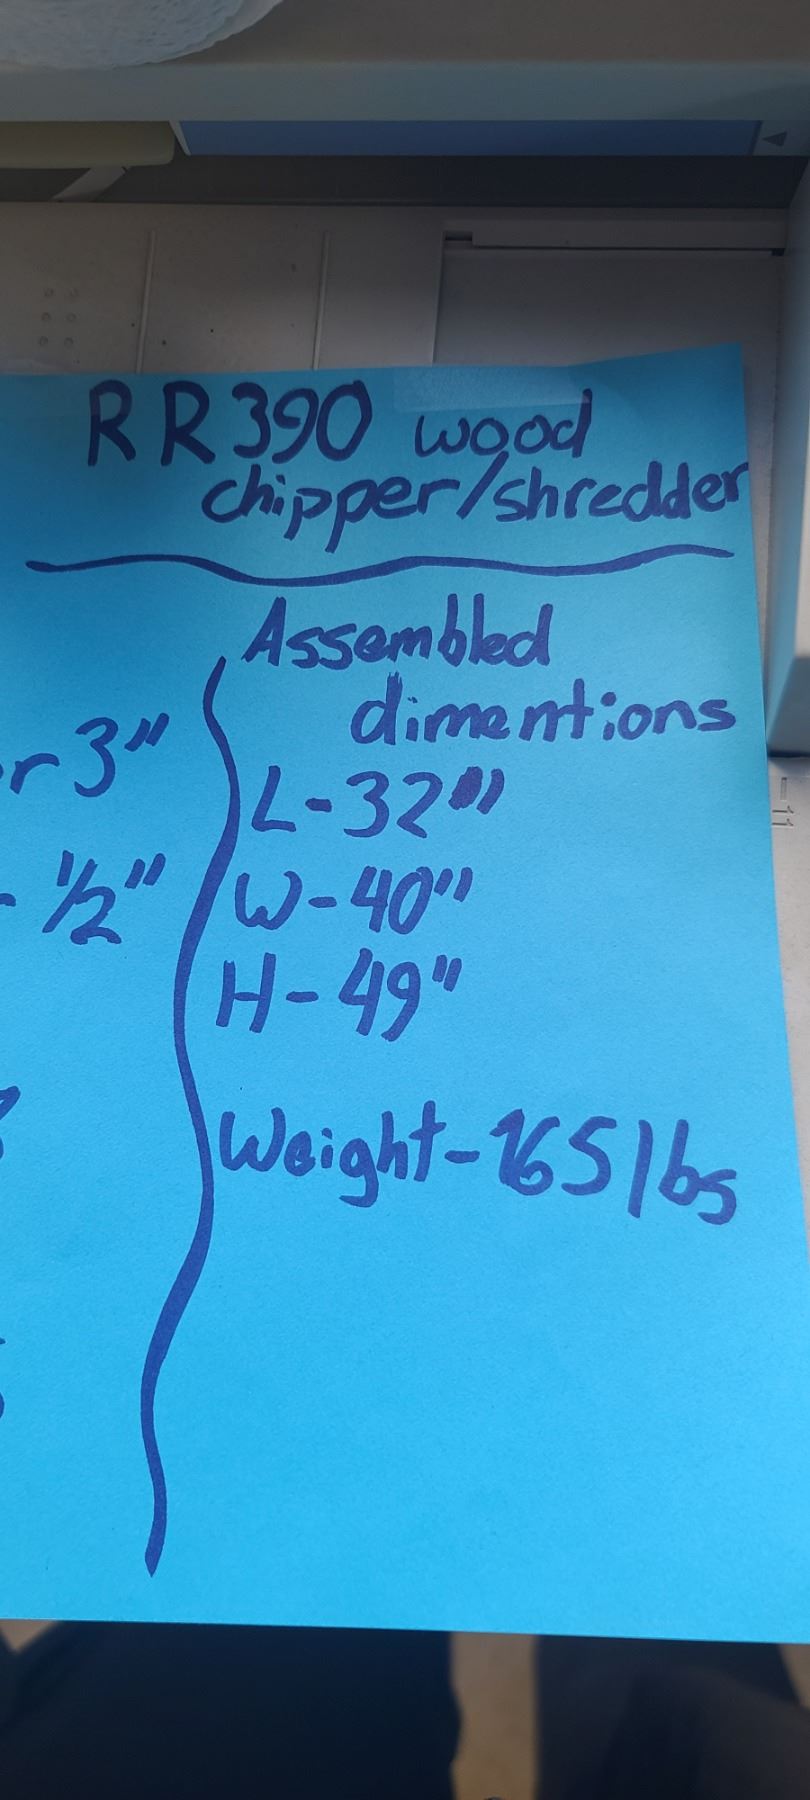 RR390 wood
chipper/shredder
r 3"
- 1/2"
Assembled
dimentions
L-32"
W-40"
H-49"
Weight-165lbs